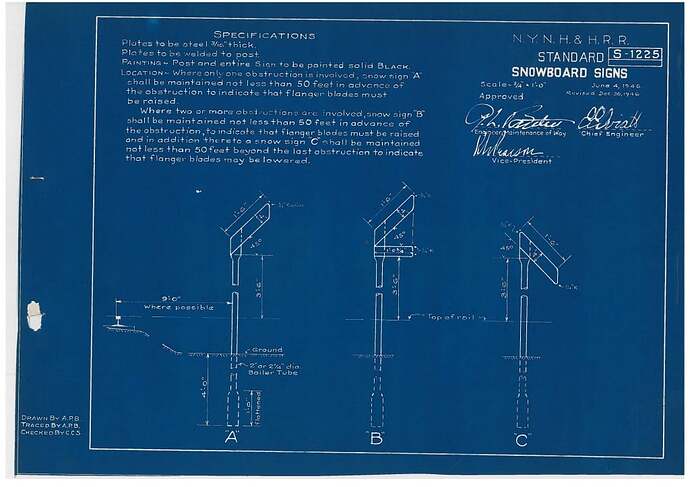 SPECIFICATIONS
Plates to be steel 3/16" thick.
Plates to be welded to post.
PAINTING ~ Post and entire Sign to be painted solid BLACK.
LOCATION ~ Where only one obstruction is involved, snow sign "A"
shall be maintained not less than 50 feet in advance of
the obstruction to indicate that flanger blades must
be raised.
Where two or more obstructions are involved, snow sign "B"
shall be maintained not less than 50 feet in advance of
the obstruction, to indicate that flanger blades must be raised
and in addition thereto a snow sign "C" shall be maintained
not less than 50 feet beyond the last obstruction to indicate
that flanger blades may be lowered.
N.Y. N.H. & H. R.R.
STANDARD S-1225
SNOWBOARD SIGNS
Scale ~ 3/4" = 1'-0"
June 4, 1946
Revised Dec. 30, 1946
Approved
Engineer Maintenance of Way
Chief Engineer
Vice-President
1'-0"
45°
3'-6"
1'-0"
45°
3'-6"
1'-0"
45°
3'-6"
9'-0"
Where possible
Top of rail
Ground
2" or 2 1/4" dia.
Boiler Tube
4'-0"
1'-0"
flattened
"A"
"B"
"C"
DRAWN BY A.P.B.
TRACED BY A.P.B.
CHECKED BY C.C.S.